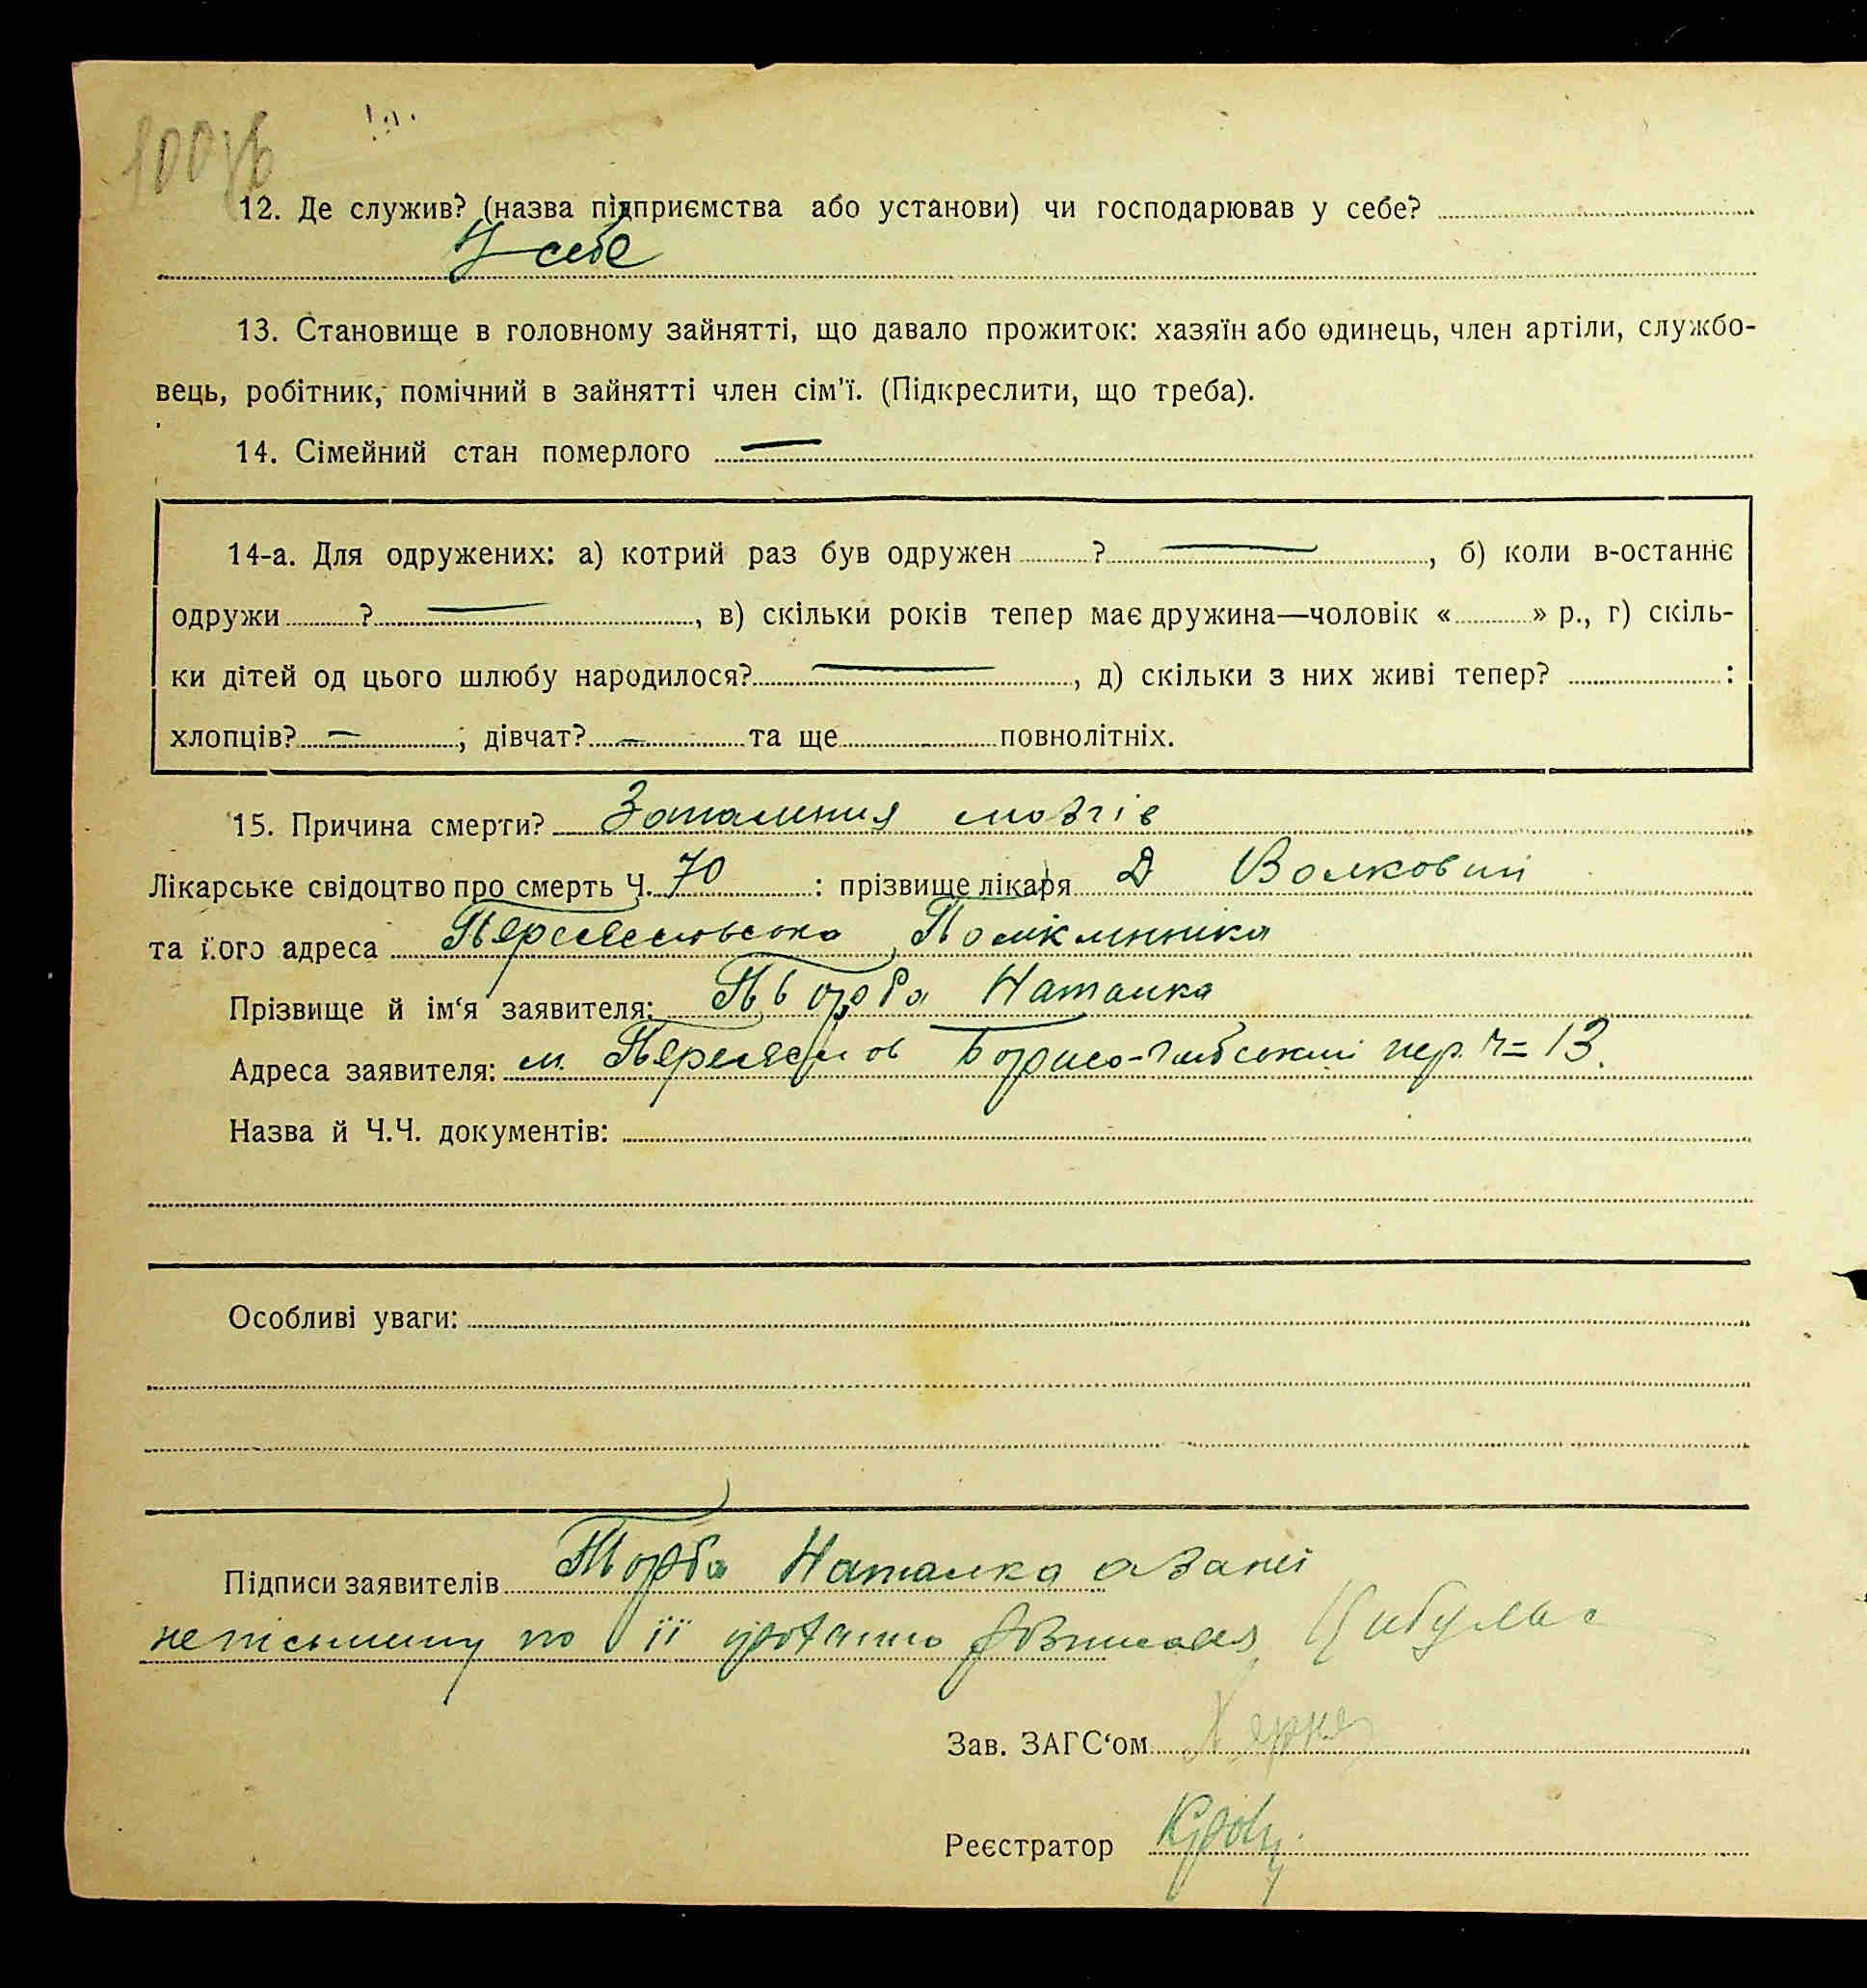 12. Де служив? (назва підприємства або установи) чи господарював у себе?
У себе
13. Становище в головному зайнятті, що давало прожиток: хазяїн або одинець, член артіли, службо-
вець, робітник, помічний в зайнятті член сім'ї. (Підкреслити, що треба).
14. Сімейний стан померлого —
14-а. Для одружених: а) котрий раз був одружен ? —, б) коли в-останнє
одружи ? —, в) скільки років тепер має дружина—чоловік « » р., г) скіль-
ки дітей од цього шлюбу народилося? —, д) скільки з них живі тепер? :
хлопців? — ; дівчат? — та ще повнолітніх.
15. Причина смерти? Запалення мозгів
Лікарське свідоцтво про смерть Ч. 70 : прізвище лікаря Волковий
та його адреса Переяславська Поліклиніка
Прізвище й ім‘я заявителя: Наталка
Адреса заявителя: м. Переяслов Борисо-Глібський пер. Ч= 13.
Назва й Ч.Ч. документів:
Особливі уваги:
Підписи заявителів Торба Наталка а за неї
неписьменну по її проханню Цибуль
Зав. ЗАГС‘ом
Реєстратор